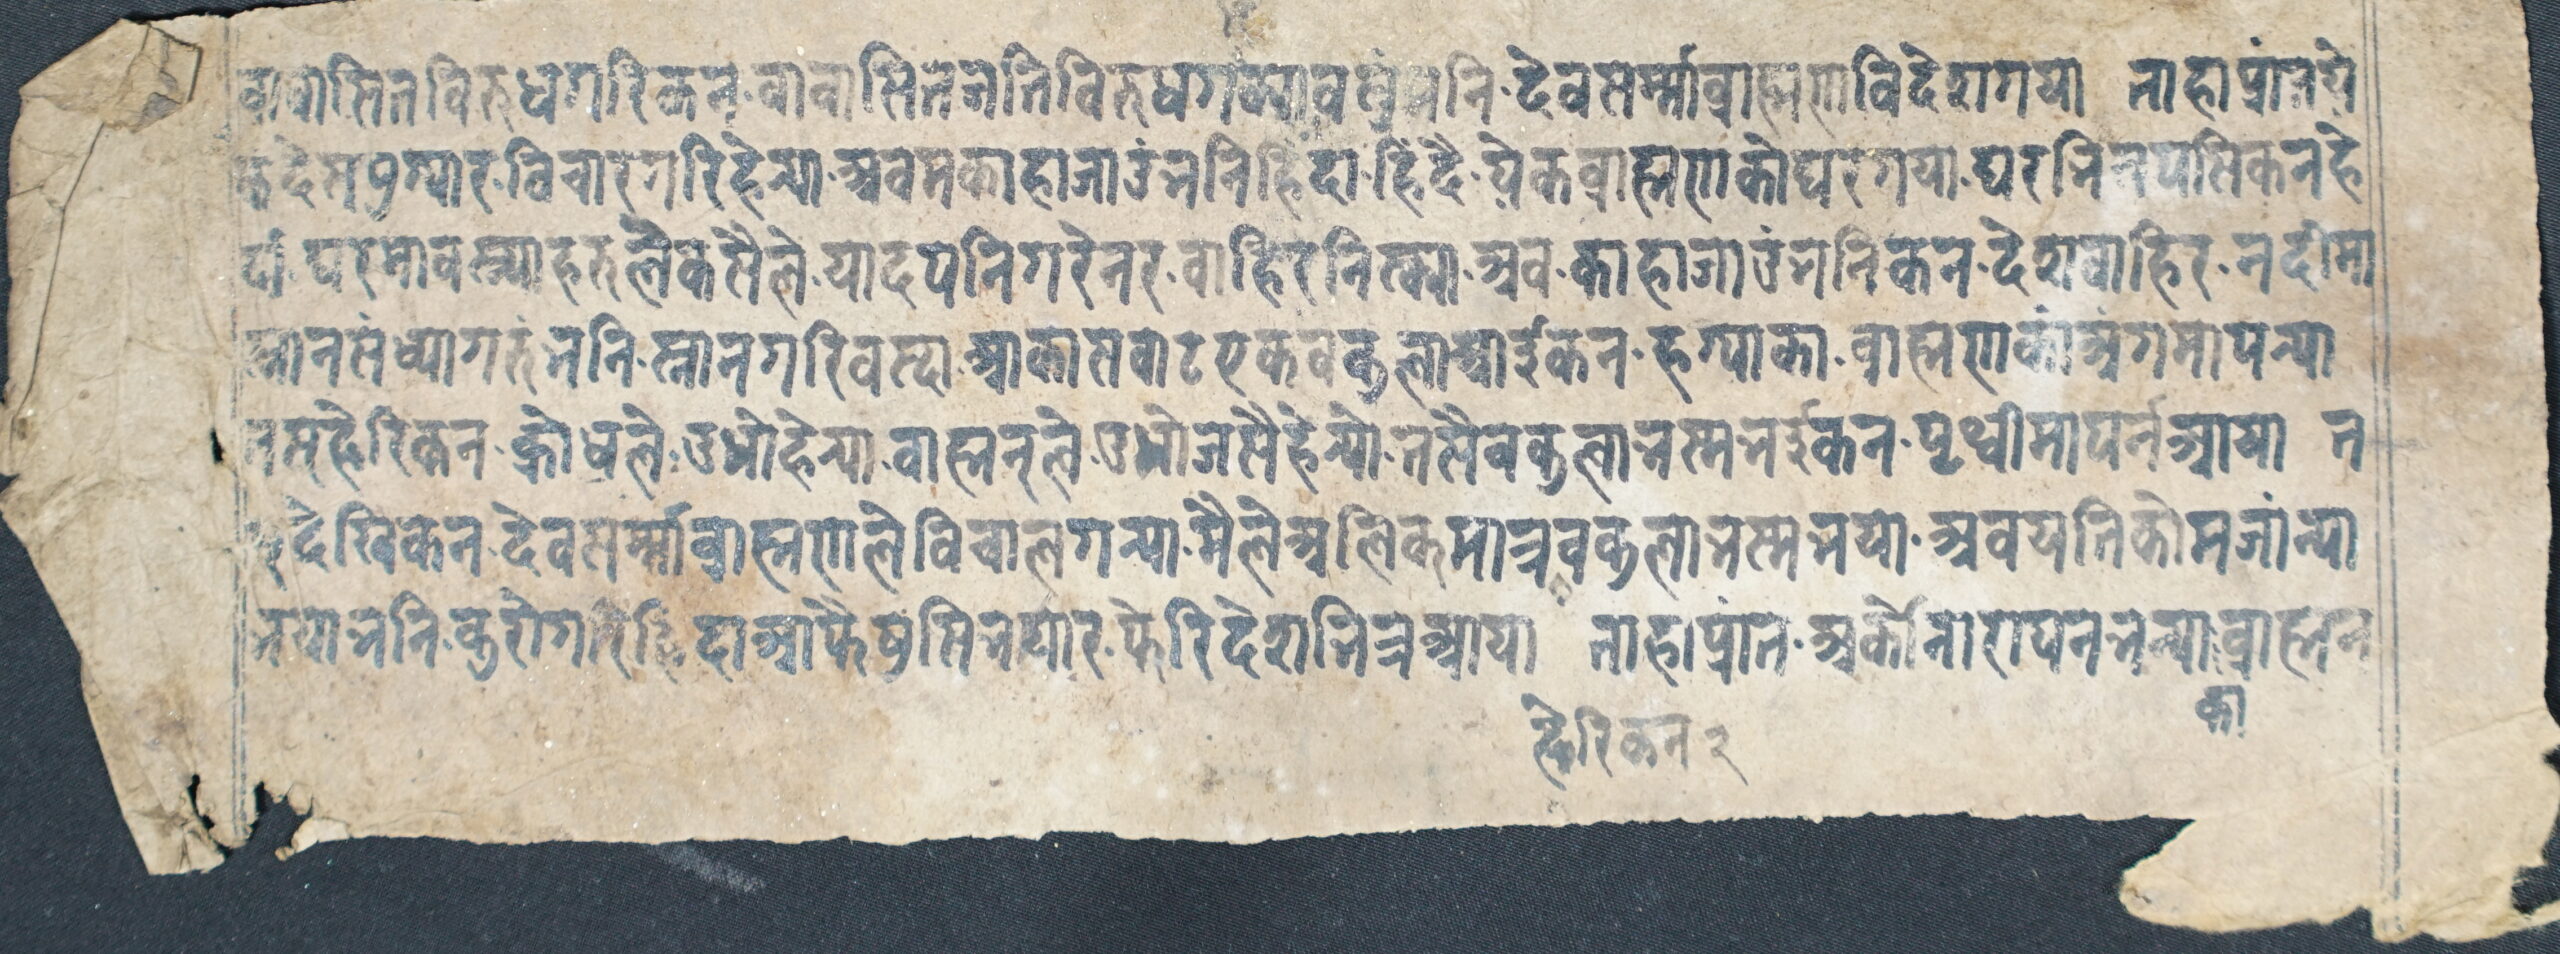 वावासितविरुधगरिकन्·वावासितजतिविरुधगर्‍यावस्तुंभनि·देवसर्म्मावाह्मणविदेशगया ताहाप्रांतये
कदेसपुग्यार·विचारगरिहेन्या·अवमकाहाजाउंभनिहिंदा·हिंदै·येकवाह्मणकोघरगया·घरभित्रपसिकनहे
दां·घरमावस्न्याहरुलेकसैले·यादपनिगरेनर·वाहिरनिस्क्या·अव·काहाजाउंभनिकन·देशवाहिर·नदीमा
स्नानसंध्यागरुंभनि·स्नानगरिवस्दा·आकासवाटएकवकुलाआईकन·हग्याका·वाह्मणकांअंगमापन्या
तसहेरिकन·क्रोधले·उभोहेन्या·वाह्मनले·उभोजसैहेन्यो·तसैवकुलाभस्मभईकन·पृथ्वीमाघर्नआया त
देखिकन·देवसर्म्मावाह्मणलेविचालगन्या·मैलेअलिकमात्रवकुलाभस्मभया·अवयतिकोमजांन्या
भयाभनि·कुरोगरिहिंदाआफैषुसिभयार·फेरिदेशभित्रआया ताहाप्रांत·अर्कोनारायनभन्या·वाह्मन
का
हेरिकन २